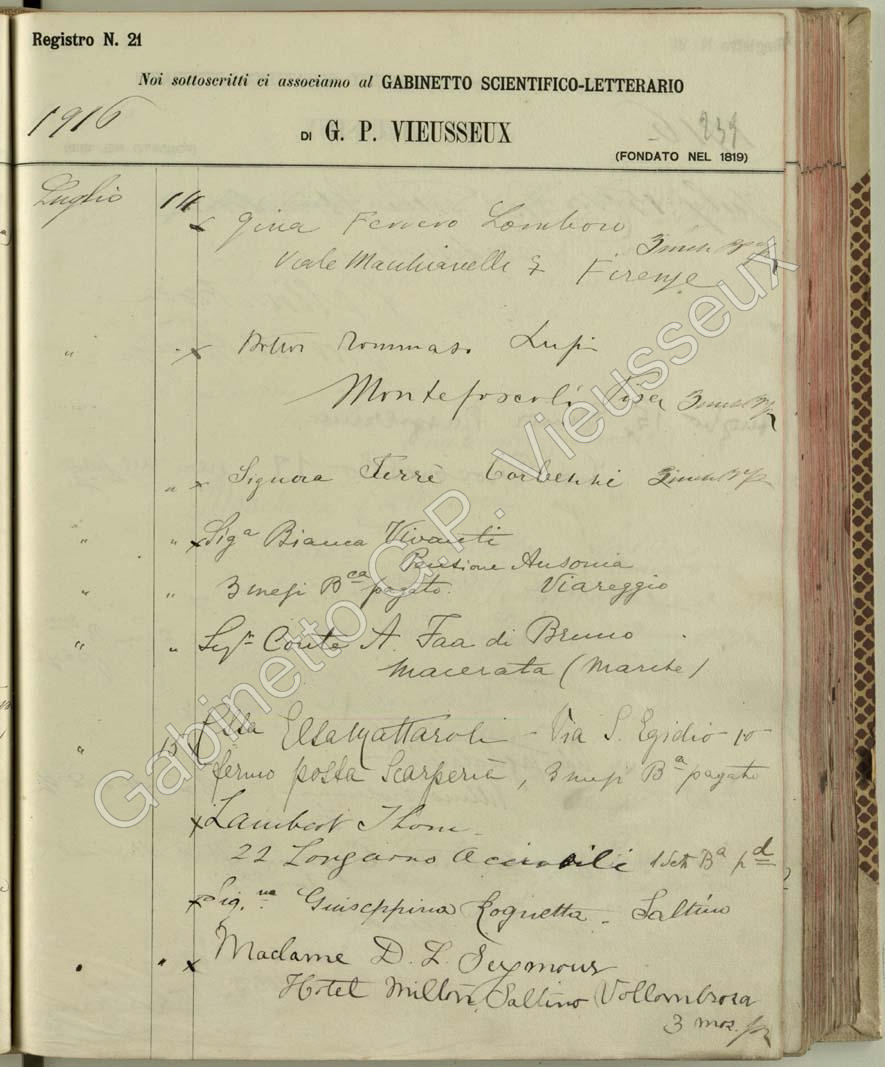 Registro N. 21
Noi sottoscritti ci associamo al GABINETTO SCIENTIFICO-LETTERARIO
1916
DI G. P. VIEUSSEUX
239
(FONDATO NEL 1819)
Luglio 14 x Gina Ferrero Lombroso
Viale Machiavelli 7 Firenze
" x Dottor Tommaso Lupi
Montefoscoli Pisa
" x Signora Ferrè
" " x Sigª Bianca Vivanti
Pensione Ausonia
" " 3 mesi Bca pagato. Viareggio
" " Sigr Conte A. Faa di Bruno
Macerata (Marche)
" 15 x Elsa Mattaroli - Via S. Egidio 10
fermo posta Scarperia, 3 mesi Bª pagato
x Lambert Thom
22 Lungarno Acciaioli 1 Sett Bª pd
x Sig.na Guiseppina Rognetta - Saltino
" " x Madame D. L. Seymour
Hotel Milton, Saltino Vollombrosa
3 mos.
Gabinetto G.P. Vieusseux